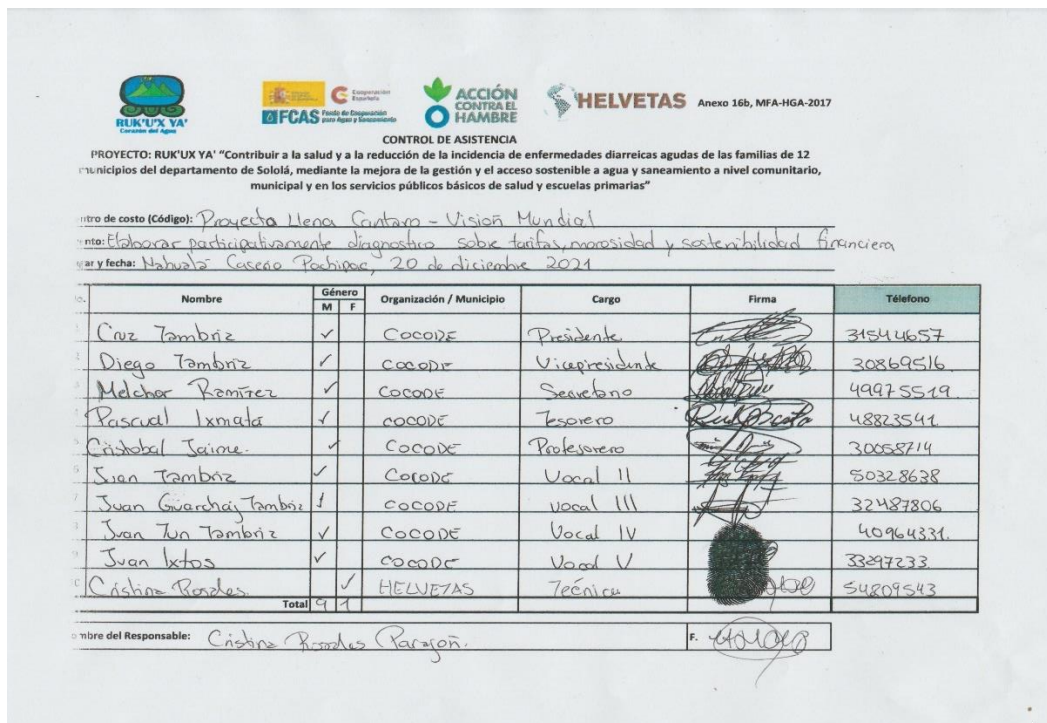 RUK'U'X YA'
Corazón del Agua
Cooperación Española
FCAS Fondo de Cooperación para Agua y Saneamiento
ACCIÓN CONTRA EL HAMBRE
HELVETAS Anexo 16b, MFA-HGA-2017
CONTROL DE ASISTENCIA
PROYECTO: RUK'UX YA' “Contribuir a la salud y a la reducción de la incidencia de enfermedades diarreicas agudas de las familias de 12
municipios del departamento de Sololá, mediante la mejora de la gestión y el acceso sostenible a agua y saneamiento a nivel comunitario,
municipal y en los servicios públicos básicos de salud y escuelas primarias”
ntro de costo (Código): Proyecto Llena Cantaro - Visión Mundial
nto: Elaborar participativamente diagnostico sobre tarifas, morosidad y sostenibilidad financiera
ar y fecha: Nahualá Caserio Pachipac, 20 de diciembre 2021
o. Nombre Género M F Organización / Municipio Cargo Firma Télefono
Cruz Tambriz ✓ COCODE Presidente 31544657
2 Diego Tambriz ✓ COCODE Vicepresidente 30869516
Melchor Ramírez ✓ COCODE Secretario 49975519
Pascual Ixmatá ✓ COCODE Tesorero 48823541
Cristobal Jaime. ✓ COCODE 30058714
6 Juan Tambriz ✓ COCODE Vocal II 50328638
7 Juan Guarchaj Tambriz ✓ COCODE Vocal III 32487806
Juan Tun Tambriz ✓ COCODE Vocal IV 40964331.
Juan Ixtos ✓ COCODE Vocal V 33297233
Cristina Rosales. ✓ HELVETAS Técnica 54809543
Total 9 1
mbre del Responsable: Cristina Rosales F.